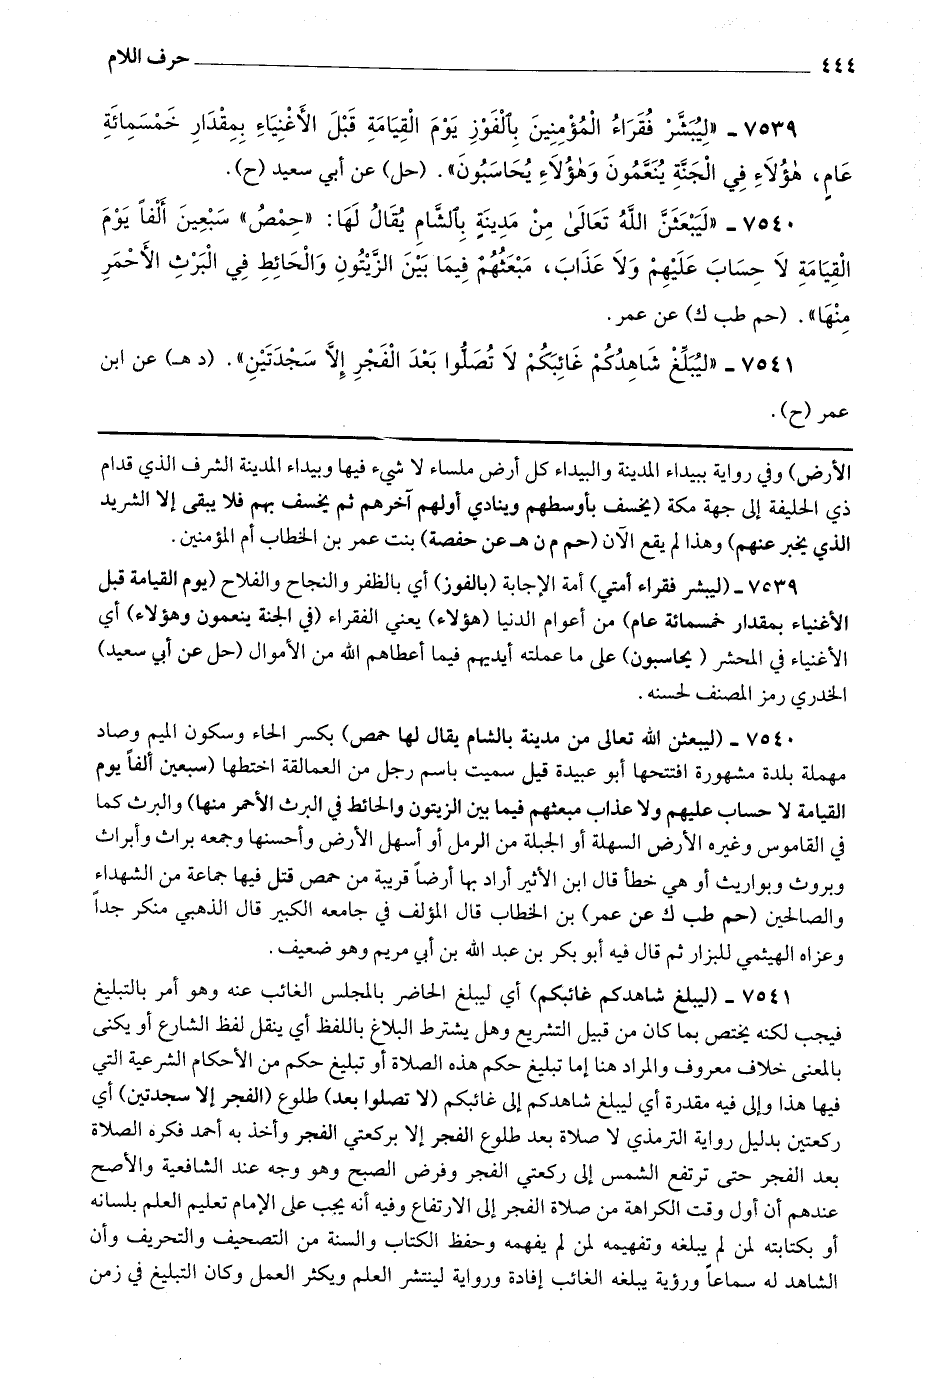 ٤٤٤ حرف اللام
٧٥٣٩ ـ «لِيُبَشَّرْ فُقَرَاءُ الْمُؤْمِنِينَ بِالْفَوْزِ يَوْمَ الْقِيَامَةِ قَبْلَ الأَغْنِيَاءِ بِمِقْدَارِ خَمْسَمِائَةِ
عَامٍ، هٰؤُلاَءِ فِي الْجَنَّةِ يُنَعَّمُونَ وَهٰؤُلاَءِ يُحَاسَبُونَ». (حل) عن أبي سعيد (ح).
٧٥٤٠ ـ «لَيَبْعَثَنَّ اللَّهُ تَعَالَىٰ مِنْ مَدِينَةٍ بِالشَّامِ يُقَالُ لَهَا: «حِمْصُ» سَبْعِينَ أَلْفاً يَوْمَ
الْقِيَامَةِ لاَ حِسَابَ عَلَيْهِمْ وَلاَ عَذَابَ، مَبْعَثُهُمْ فِيمَا بَيْنَ الزَّيْتُونِ وَالْحَائِطِ فِي الْبَرْثِ الأَحْمَرِ
مِنْهَا». (حم طب ك) عن عمر.
٧٥٤١ ـ «لِيُبَلِّغْ شَاهِدُكُمْ غَائِبَكُمْ لاَ تُصَلُّوا بَعْدَ الْفَجْرِ إِلاَّ سَجْدَتَيْنِ». (د هـ) عن ابن
عمر (ح).
الأرض) وفي رواية ببيداء المدينة والبيداء كل أرض ملساء لا شيء فيها وبيداء المدينة الشرف الذي قدام
ذي الحليفة إلى جهة مكة (يخسف بأوسطهم وينادي أولهم آخرهم ثم يخسف بهم فلا يبقى إلا الشريد
الذي يخبر عنهم) وهذا لم يقع الآن (حم م ن هـ عن حفصة) بنت عمر بن الخطاب أم المؤمنين.
٧٥٣٩ ـ (ليبشر فقراء أمتي) أمة الإجابة (بالفوز) أي بالظفر والنجاح والفلاح (يوم القيامة قبل
الأغنياء بمقدار خمسمائة عام) من أعوام الدنيا (هؤلاء) يعني الفقراء (في الجنة ينعمون وهؤلاء) أي
الأغنياء في المحشر ( يحاسبون) على ما عملته أيديهم فيما أعطاهم الله من الأموال (حل عن أبي سعيد)
الخدري رمز المصنف لحسنه.
٧٥٤٠ ـ (ليبعثن الله تعالى من مدينة بالشام يقال لها حمص) بكسر الحاء وسكون الميم وصاد
مهملة بلدة مشهورة افتتحها أبو عبيدة قيل سميت باسم رجل من العمالقة اختطها (سبعين ألفاً يوم
القيامة لا حساب عليهم ولا عذاب مبعثهم فيما بين الزيتون والحائط في البرث الأحمر منها) والبرث كما
في القاموس وغيره الأرض السهلة أو الجبلة من الرمل أو أسهل الأرض وأحسنها وجمعه براث وأبراث
وبروث وبواريث أو هي خطأ قال ابن الأثير أراد بها أرضاً قريبة من حمص قتل فيها جماعة من الشهداء
والصالحين (حم طب ك عن عمر) بن الخطاب قال المؤلف في جامعه الكبير قال الذهبي منكر جداً
وعزاه الهيثمي للبزار ثم قال فيه أبو بكر بن عبد الله بن أبي مريم وهو ضعيف.
٧٥٤١ ـ (ليبلغ شاهدكم غائبكم) أي ليبلغ الحاضر بالمجلس الغائب عنه وهو أمر بالتبليغ
فيجب لكنه يختص بما كان من قبيل التشريع وهل يشترط البلاغ باللفظ أي ينقل لفظ الشارع أو يكنى
بالمعنى خلاف معروف والمراد هنا إما تبليغ حكم هذه الصلاة أو تبليغ حكم من الأحكام الشرعية التي
فيها هذا وإلى فيه مقدرة أي ليبلغ شاهدكم إلى غائبكم (لا تصلوا بعد) طلوع (الفجر إلا سجدتين) أي
ركعتين بدليل رواية الترمذي لا صلاة بعد طلوع الفجر إلا بركعتي الفجر وأخذ به أحمد فكره الصلاة
بعد الفجر حتى ترتفع الشمس إلى ركعتي الفجر وفرض الصبح وهو وجه عند الشافعية والأصح
عندهم أن أول وقت الكراهة من صلاة الفجر إلى الارتفاع وفيه أنه يجب على الإمام تعليم العلم بلسانه
أو بكتابته لمن لم يبلغه وتفهيمه لمن لم يفهمه وحفظ الكتاب والسنة من التصحيف والتحريف وأن
الشاهد له سماعاً ورؤية يبلغه الغائب إفادة ورواية لينتشر العلم ويكثر العمل وكان التبليغ في زمن